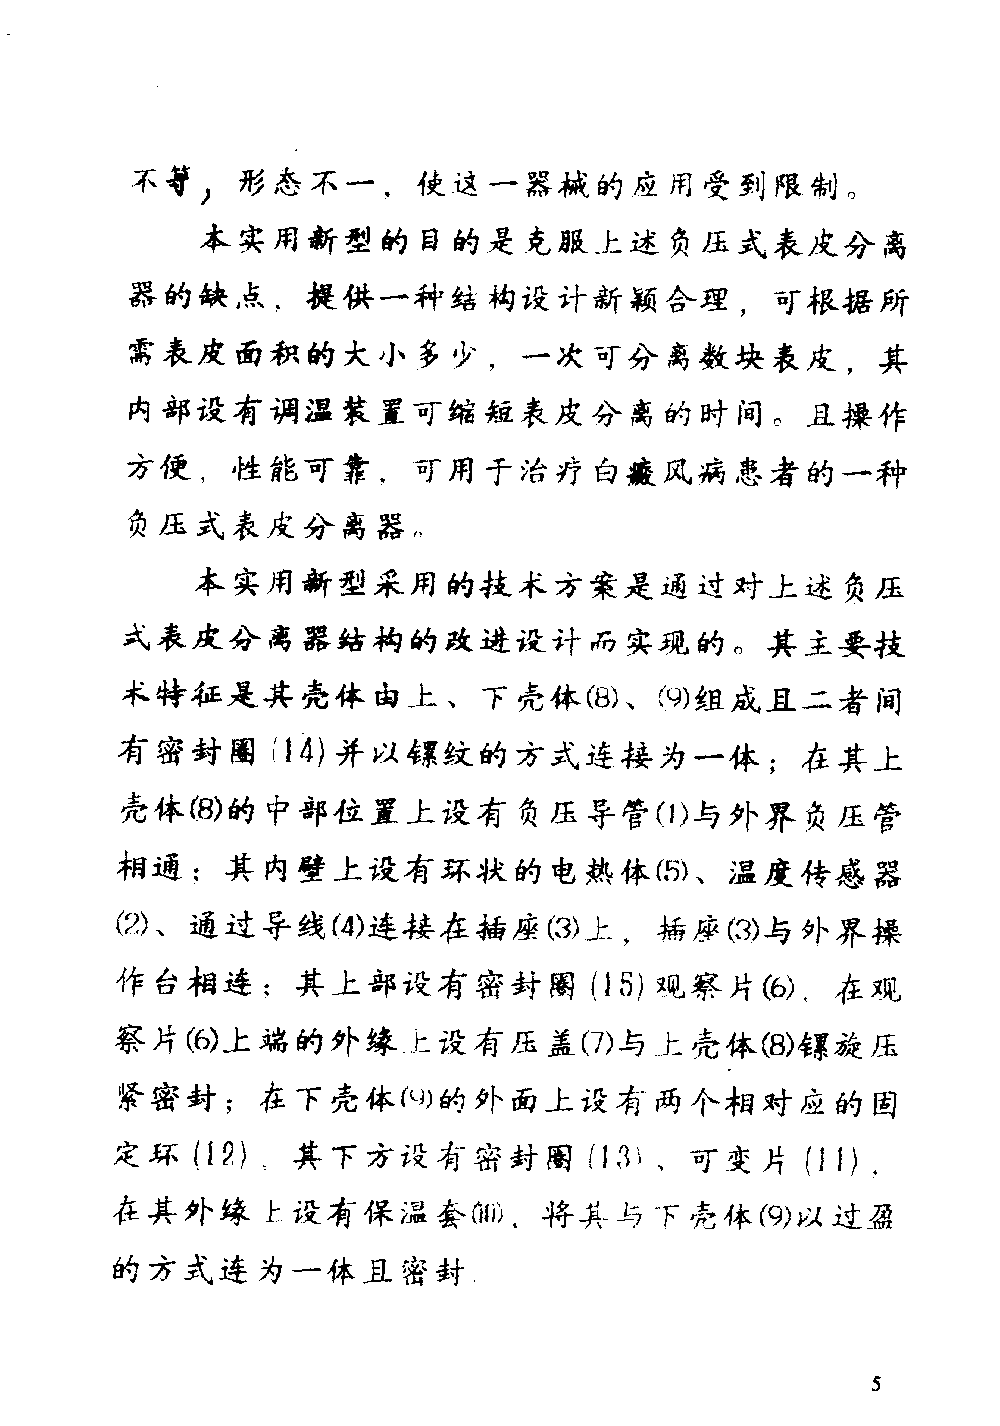 不等，形态不一，使这一器械的应用受到限制。
本实用新型的目的是克服上述负压式表皮分离
器的缺点，提供一种结构设计新颖合理，可根据所
需表皮面积的大小多少，一次可分离数块表皮，其
内部设有调温装置可缩短表皮分离的时间。且操作
方便，性能可靠，可用于治疗白癜风病患者的一种
负压式表皮分离器。
本实用新型采用的技术方案是通过对上述负压
式表皮分离器结构的改进设计而实现的。其主要技
术特征是其壳体由上、下壳体(8)、(9)组成且二者间
有密封圈(14)并以镙纹的方式连接为一体；在其上
壳体(8)的中部位置上设有负压导管(1)与外界负压管
相通；其内壁上设有环状的电热体(5)、温度传感器
(2)、通过导线(4)连接在插座(3)上，插座(3)与外界操
作台相连；其上部设有密封圈(15)观察片(6)，在观
察片(6)上端的外缘上设有压盖(7)与上壳体(8)镙旋压
紧密封；在下壳体(9)的外面上设有两个相对应的固
定环(12)，其下方设有密封圈(13)、可变片(11)，
在其外缘上设有保温套(10)，将其与下壳体(9)以过盈
的方式连为一体且密封.
5